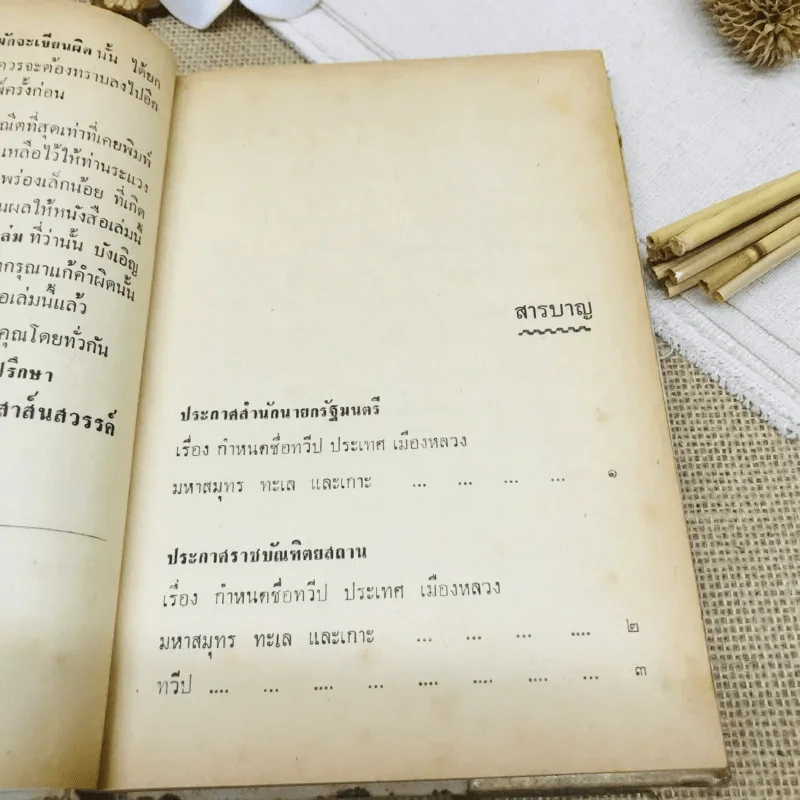 มักจะเขียนผิด นั้น ได้ยก
ควรจะต้องทราบลงไปอีก
ครั้งก่อน
ที่สุดเท่าที่เคยพิมพ์
เหลือไว้ให้ท่านระแวง
พร่องเล็กน้อย ที่เกิด
ผลให้หนังสือเล่มนี้
ที่ว่านั้น บังเอิญ
กรุณาแก้คำผิดนั้น
เล่มนี้แล้ว
คุณโดยทั่วกัน
สาส์นสวรรค์
สารบาญ
ประกาศสำนักนายกรัฐมนตรี
เรื่อง กำหนดชื่อทวีป ประเทศ เมืองหลวง
มหาสมุทร ทะเล และเกาะ ... ... ... ... ๑
ประกาศราชบัณฑิตยสถาน
เรื่อง กำหนดชื่อทวีป ประเทศ เมืองหลวง
มหาสมุทร ทะเล และเกาะ ... ... ... .... ๒
ทวีป .... ... .... ... .... .... .... ... ๓